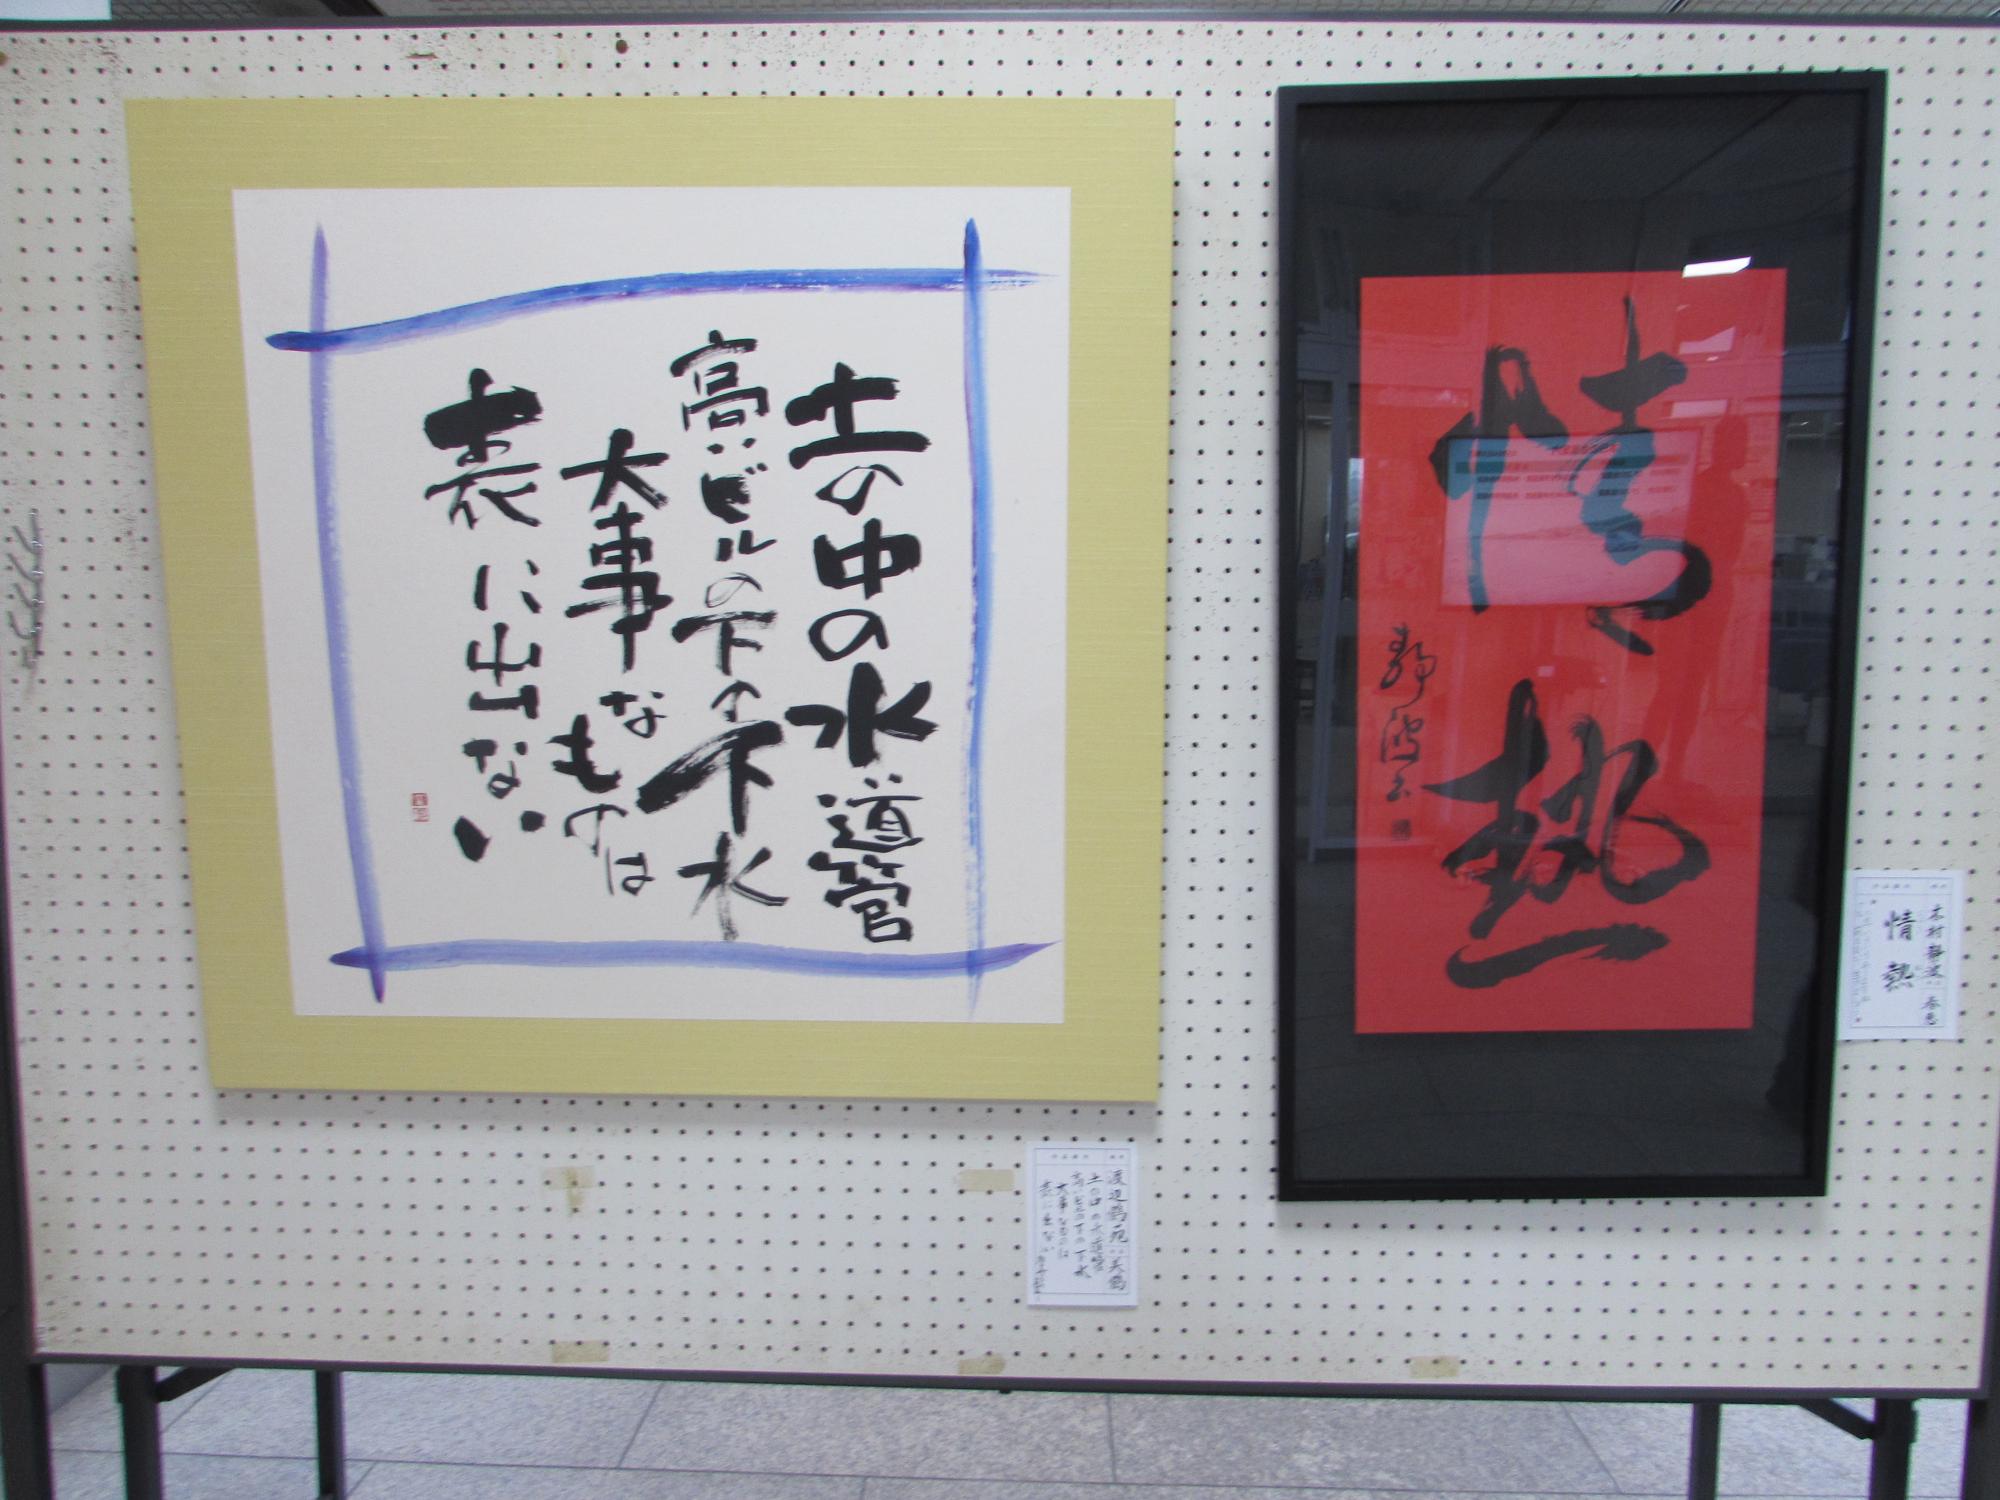 土の中の水道管
高いビルの下の下水
大事なものは
表に出ない
情熱
静波
木村静波
情熱
土の中の水道管
高いビルの下の下水
大事なものは
表に出ない